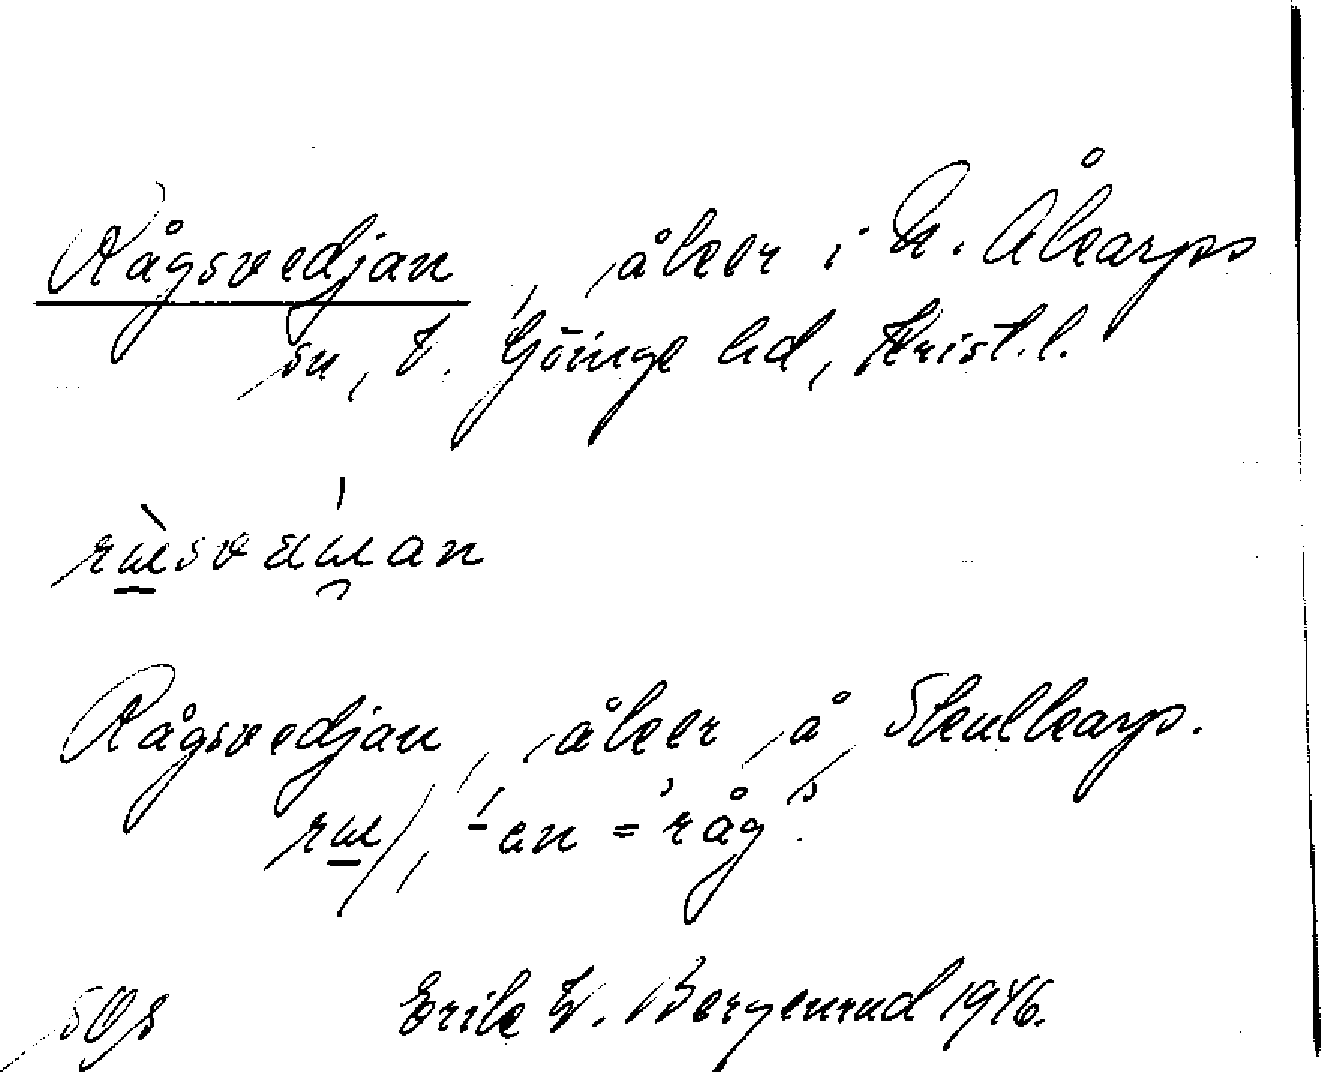 Rågsvedjan, åker i N. Åkarps
sn, V. Göinge hd, Krist. l.
Rågsvedjan, åker å Skulkarp.
-en = 'råg'.
Erik W. Bergenrud 1946.